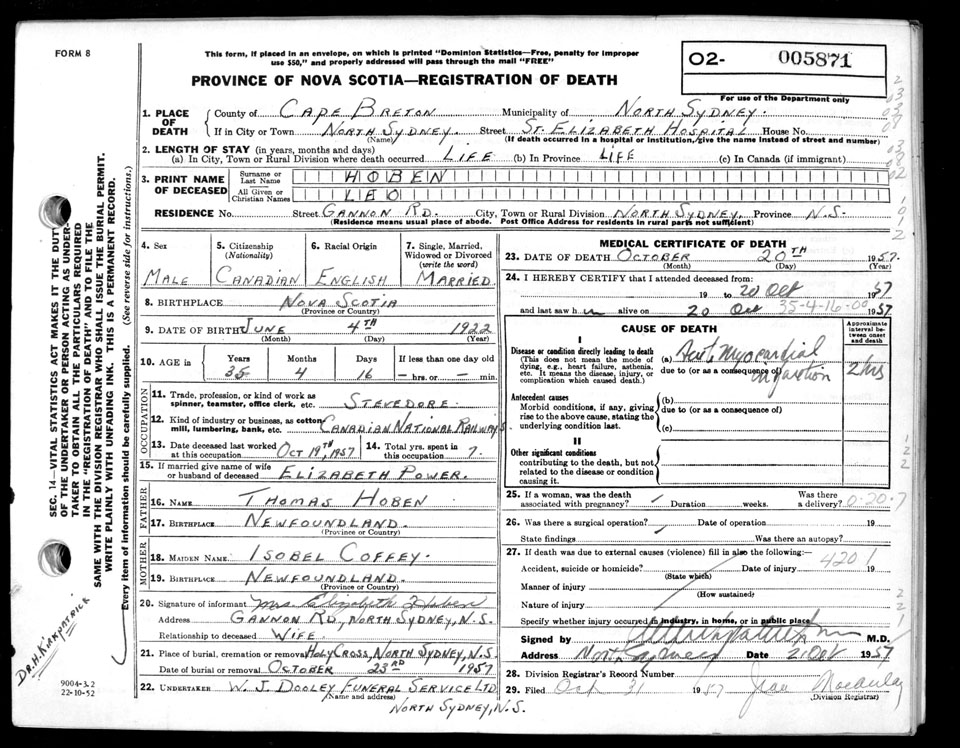 FORM 8
This form, if placed in an envelope, on which is printed "Dominion Statistics—Free, penalty for improper
use $50," and properly addressed will pass through the mail "FREE"
PROVINCE OF NOVA SCOTIA—REGISTRATION OF DEATH
02- 005871
For use of the Department only
1. PLACE OF DEATH { County of CAPE BRETON Municipality of NORTH SYDNEY.
If in City or Town NORTH SYDNEY. Street ST. ELIZABETH HOSPITAL House No.
(Name) (If death occurred in a hospital or institution, give the name instead of street and number)
2. LENGTH OF STAY (in years, months and days)
(a) In City, Town or Rural Division where death occurred LIFE (b) In Province LIFE (c) In Canada (if immigrant)
3. PRINT NAME OF DECEASED { Surname or Last Name HOBEN
All Given or Christian Names LEO
RESIDENCE No. Street GANNON RD. City, Town or Rural Division NORTH SYDNEY, Province N.S.
(Residence means usual place of abode. Post Office Address for residents in rural parts not sufficient)
4. Sex 5. Citizenship (Nationality) 6. Racial Origin 7. Single, Married, Widowed or Divorced (write the word)
MALE CANADIAN ENGLISH MARRIED.
8. BIRTHPLACE NOVA SCOTIA
(Province or Country)
9. DATE OF BIRTH JUNE 4TH 1922
(Month) (Day) (Year)
10. AGE in Years Months Days If less than one day old
35 4 16 — hrs. or — min.
OCCUPATION
11. Trade, profession, or kind of work as
spinner, teamster, office clerk, etc. STEVEDORE.
12. Kind of industry or business, as cotton
mill, lumbering, bank, etc. CANADIAN NATIONAL RAILWAYS.
13. Date deceased last worked at this occupation OCT 19TH, 1957 14. Total yrs. spent in this occupation 7.
15. If married give name of wife
or husband of deceased ELIZABETH POWER.
FATHER
16. NAME THOMAS HOBEN
17. BIRTHPLACE NEWFOUNDLAND.
(Province or Country)
MOTHER
18. MAIDEN NAME ISOBEL COFFEY.
19. BIRTHPLACE NEWFOUNDLAND.
(Province or Country)
20. Signature of informant Mrs Elizabeth Hoben
Address GANNON RD., NORTH SYDNEY, N.S.
Relationship to deceased WIFE.
21. Place of burial, cremation or removal HOLY CROSS, NORTH SYDNEY, N.S.
Date of burial or removal OCTOBER 23RD 1957
22. UNDERTAKER W. J. DOOLEY FUNERAL SERVICE LTD
(Name and address)
NORTH SYDNEY, N.S.
MEDICAL CERTIFICATE OF DEATH
23. DATE OF DEATH OCTOBER 20TH 1957.
(Month) (Day) (Year)
24. I HEREBY CERTIFY that I attended deceased from:
19 to 20 Oct 1957
and last saw him alive on 20 Oct 1957.
35-4-16-00
CAUSE OF DEATH
Approximate interval between onset and death
I
Disease or condition directly leading to death
(This does not mean the mode of dying, e.g., heart failure, asthenia, etc. It means the disease, injury, or complication which caused death.)
(a) Acute Myocardial infarction 2 hrs
due to (or as a consequence of)
Antecedent causes
Morbid conditions, if any, giving rise to the above cause, stating the underlying condition last.
(b)
due to (or as a consequence of)
(c)
II
Other significant conditions
contributing to the death, but not related to the disease or condition causing it.
25. If a woman, was the death associated with pregnancy? Duration weeks. Was there a delivery?
0-20-7
26. Was there a surgical operation? Date of operation 19
State findings Was there an autopsy?
27. If death was due to external causes (violence) fill in also the following:—
4201
Accident, suicide or homicide? Date of injury 19
(State which)
Manner of injury
(How sustained)
Nature of injury
Specify whether injury occurred in industry, in home, or in public place
Signed by M.D.
Address North Sydney Date 21 Oct 1957
28. Division Registrar's Record Number
29. Filed Oct 31 1957 Jean Macaulay
(Division Registrar)
SEC. 14—VITAL STATISTICS ACT MAKES IT THE DUTY
OF THE UNDERTAKER OR PERSON ACTING AS UNDER-
TAKER TO OBTAIN ALL THE PARTICULARS REQUIRED
IN THE "REGISTRATION OF DEATH" AND TO FILE THE
SAME WITH THE DIVISION REGISTRAR WHO SHALL ISSUE THE BURIAL PERMIT.
WRITE PLAINLY WITH UNFADING INK. THIS IS A PERMANENT RECORD.
Every item of information should be carefully supplied. (See reverse side for instructions.)
DR. H. KIRKPATRICK
9004-3.2
22-10-52